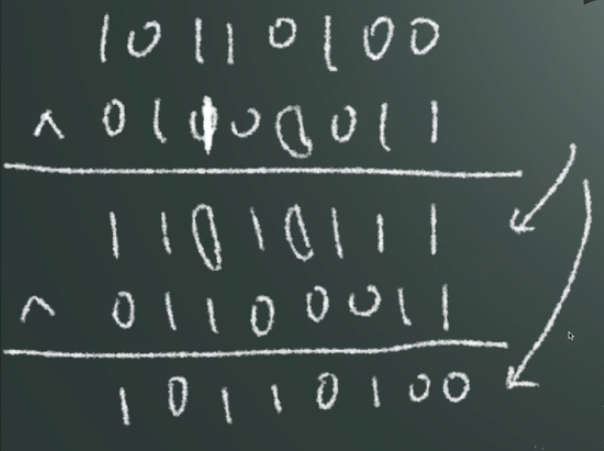 10110100
^ 01100011
11010111
^ 01100011
10110100